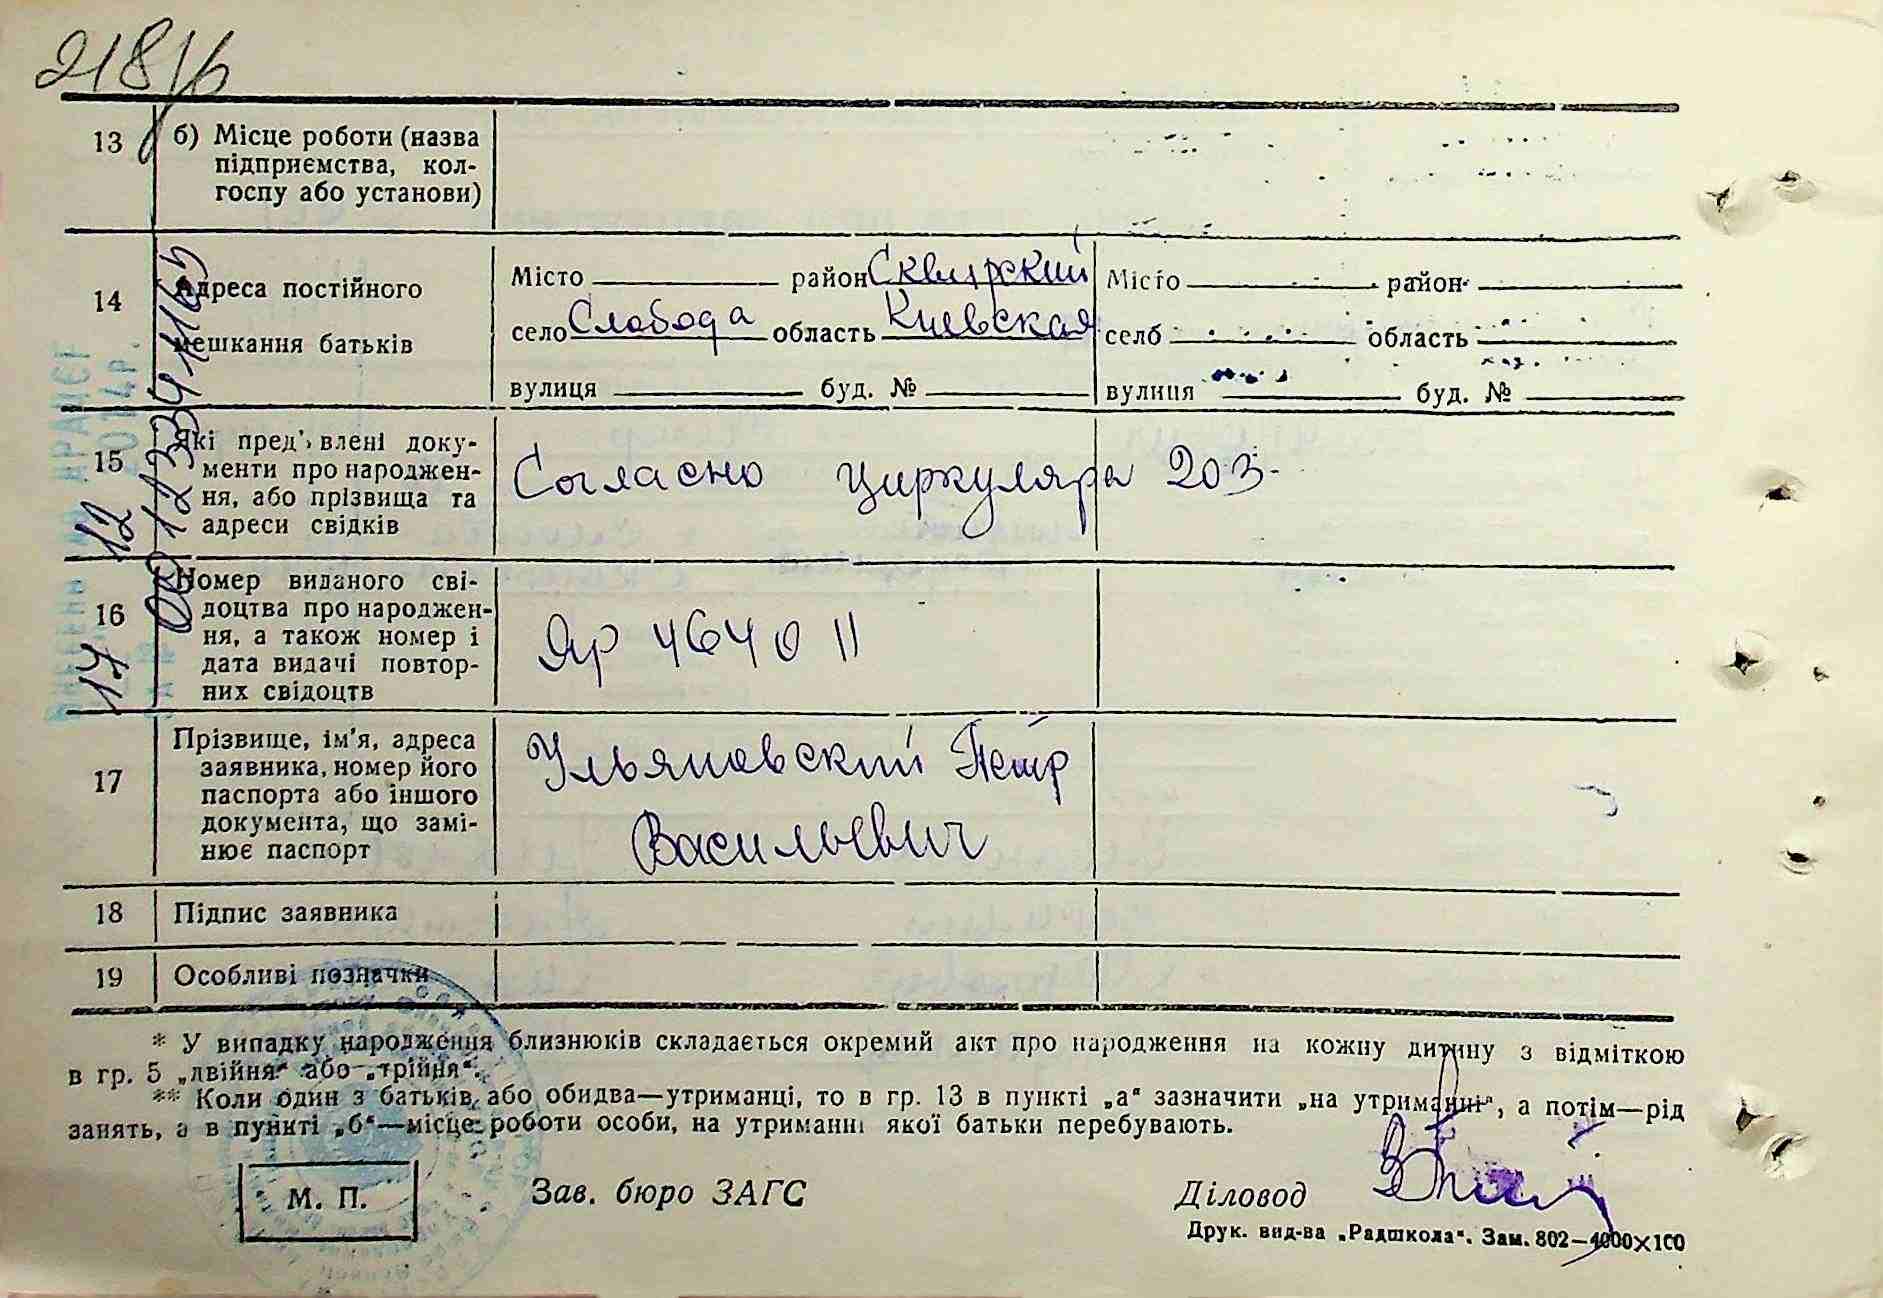 218
13 б) Місце роботи (назва
підприємства, кол-
госпу або установи)
14 Адреса постійного
мешкання батьків
Місто район Сквирский
село Слобода область Киевская
вулиця буд. №
Місто район
село область
вулиця буд. №
15 Які пред'явлені доку-
менти про народжен-
ня, або прізвища та
адреси свідків
Согласно циркуляра 203-
16 Номер виданого сві-
доцтва про народжен-
ня, а також номер і
дата видачі повтор-
них свідоцтв
Яр 4640 11
17 Прізвище, ім'я, адреса
заявника, номер його
паспорта або іншого
документа, що замі-
нює паспорт
Ульяновский Петр
Васильевич
18 Підпис заявника
19 Особливі позначки
* У випадку народження близнюків складається окремий акт про народження на кожну дитину з відміткою
в гр. 5 „двійня“ або „трійня“.
** Коли один з батьків, або обидва—утриманці, то в гр. 13 в пункті „а“ зазначити „на утриманні“, а потім—рід
занять, а в пункті „б“—місце роботи особи, на утриманні якої батьки перебувають.
М. П.
Зав. бюро ЗАГС
Діловод
Друк. вид-ва „Радшкола“. Зам. 802—4000×100